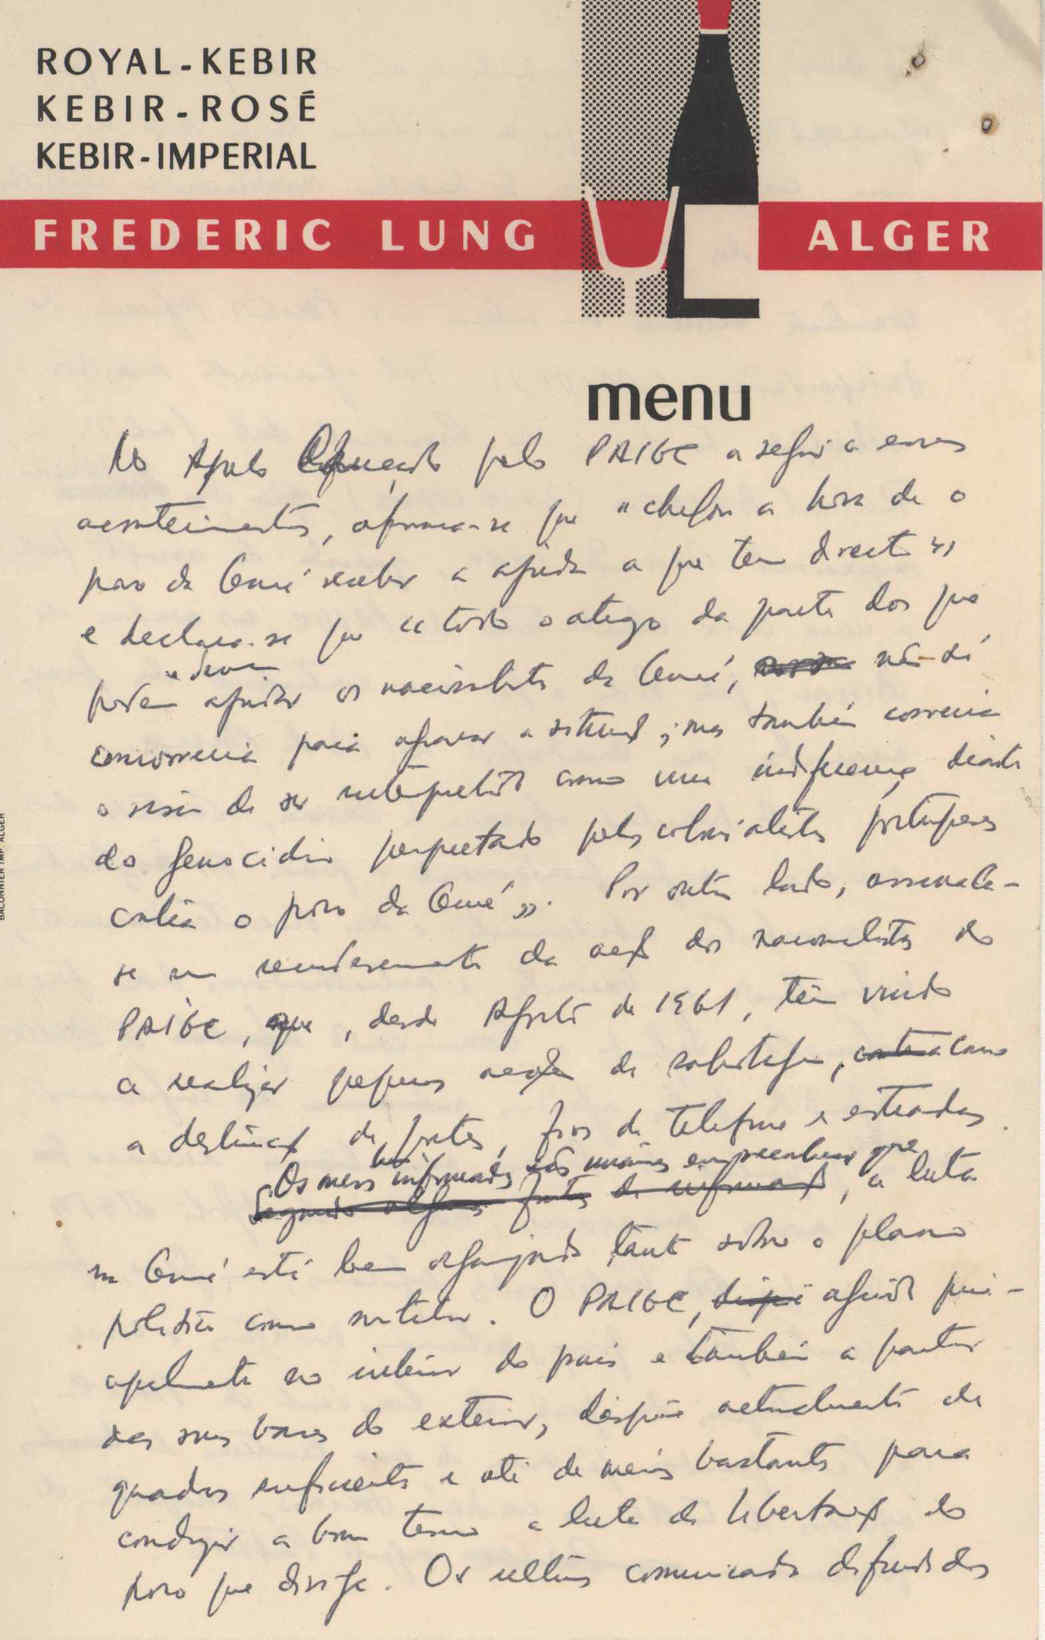 ROYAL-KEBIR
KEBIR-ROSÉ
KEBIR-IMPERIAL
FREDERIC LUNG ALGER
menu
No Apelo lançado pelo PAIGC a seguir a esses
acontecimentos, afirma-se que "chegou a hora de o
povo da Guiné receber a ajuda a que tem direito"
e declara-se que "todo o atraso da parte dos que
"devem
podem ajudar os nacionalistas da Guiné, não só
concorreria para agravar a situação; mas também correria
o risco de ser interpretado como uma indiferença diante
do genocídio perpetrado pelos colonialistas portugueses
contra o povo da Guiné". Por outro lado, assinala-
se um recrudescimento da acção dos nacionalistas do
PAIGC, que, desde Agosto de 1961, têm vindo
a realizar pequenas acções de sabotagem, contra como
a destruição de pontes, fios de telefone e estradas.
Os meios bem informados são unânimes em reconhecer que
Segundo algumas fontes de informação, a luta
na Guiné está bem organizada tanto sobre o plano
político como militar. O PAIGC, dispõe agindo prin-
cipalmente no interior do país e também a partir
das suas bases do exterior, dispõe actualmente de
quadros suficientes e até de meios bastantes para
conduzir a bom termo a luta de libertação do
povo que dirige. Os últimos comunicados difundidos
BACONNIER IMP. ALGER